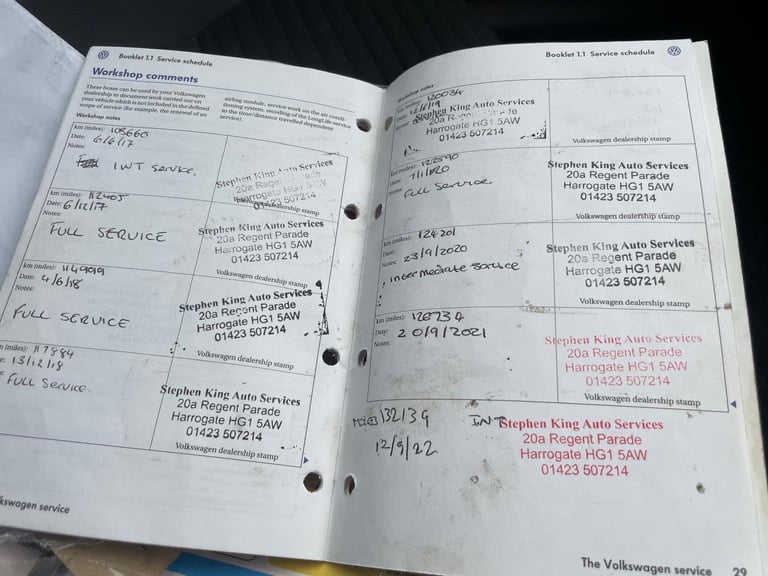 Booklet 1.1 Service schedule
Workshop comments
These boxes can be used by your Volkswagen
dealership to document work carried out on
your vehicle which is not included in the defined
scope of service (for example, the renewal of an
airbag module, service work on the air condi-
tioning system, recoding of the LongLife service
to the time/distance travelled dependent
service).
Workshop notes
km (miles): 108660
Date: 6/6/17
Notes:
INT Service.
Stephen King Auto Services
20a Regent Parade
Harrogate HG1 5AW
01423 507214
dealership stamp
km (miles): 112405
Date: 6/12/17
Notes:
FULL SERVICE
Stephen King Auto Services
20a Regent Parade
Harrogate HG1 5AW
01423 507214
Volkswagen dealership stamp
km (miles): 114999
Date: 4/6/18
Notes:
FULL SERVICE
Stephen King Auto Services
20a Regent Parade
Harrogate HG1 5AW
01423 507214
Volkswagen dealership stamp
(miles): 117884
13/12/18
FULL Service.
Stephen King Auto Services
20a Regent Parade
Harrogate HG1 5AW
01423 507214
Volkswagen dealership stamp
kswagen service
Booklet 1.1 Service schedule
Workshop notes
km (miles): 120034
Date: 12/6/19
Stephen King Auto Services
20a Regent Parade
Harrogate HG1 5AW
01423 507214
Volkswagen dealership stamp
km (miles): 122590
Date: 7/1/2020
Notes:
Full Service
Stephen King Auto Services
20a Regent Parade
Harrogate HG1 5AW
01423 507214
Volkswagen dealership stamp
km (miles): 124201
Date: 23/9/2020
Notes:
Intermediate Service
Stephen King Auto Services
20a Regent Parade
Harrogate HG1 5AW
01423 507214
Volkswagen dealership stamp
km (miles): 126734
Date: 20/9/2021
Notes:
Stephen King Auto Services
20a Regent Parade
Harrogate HG1 5AW
01423 507214
Volkswagen dealership stamp
Miles 132139
12/9/22
INT
Stephen King Auto Services
20a Regent Parade
Harrogate HG1 5AW
01423 507214
The Volkswagen service 29